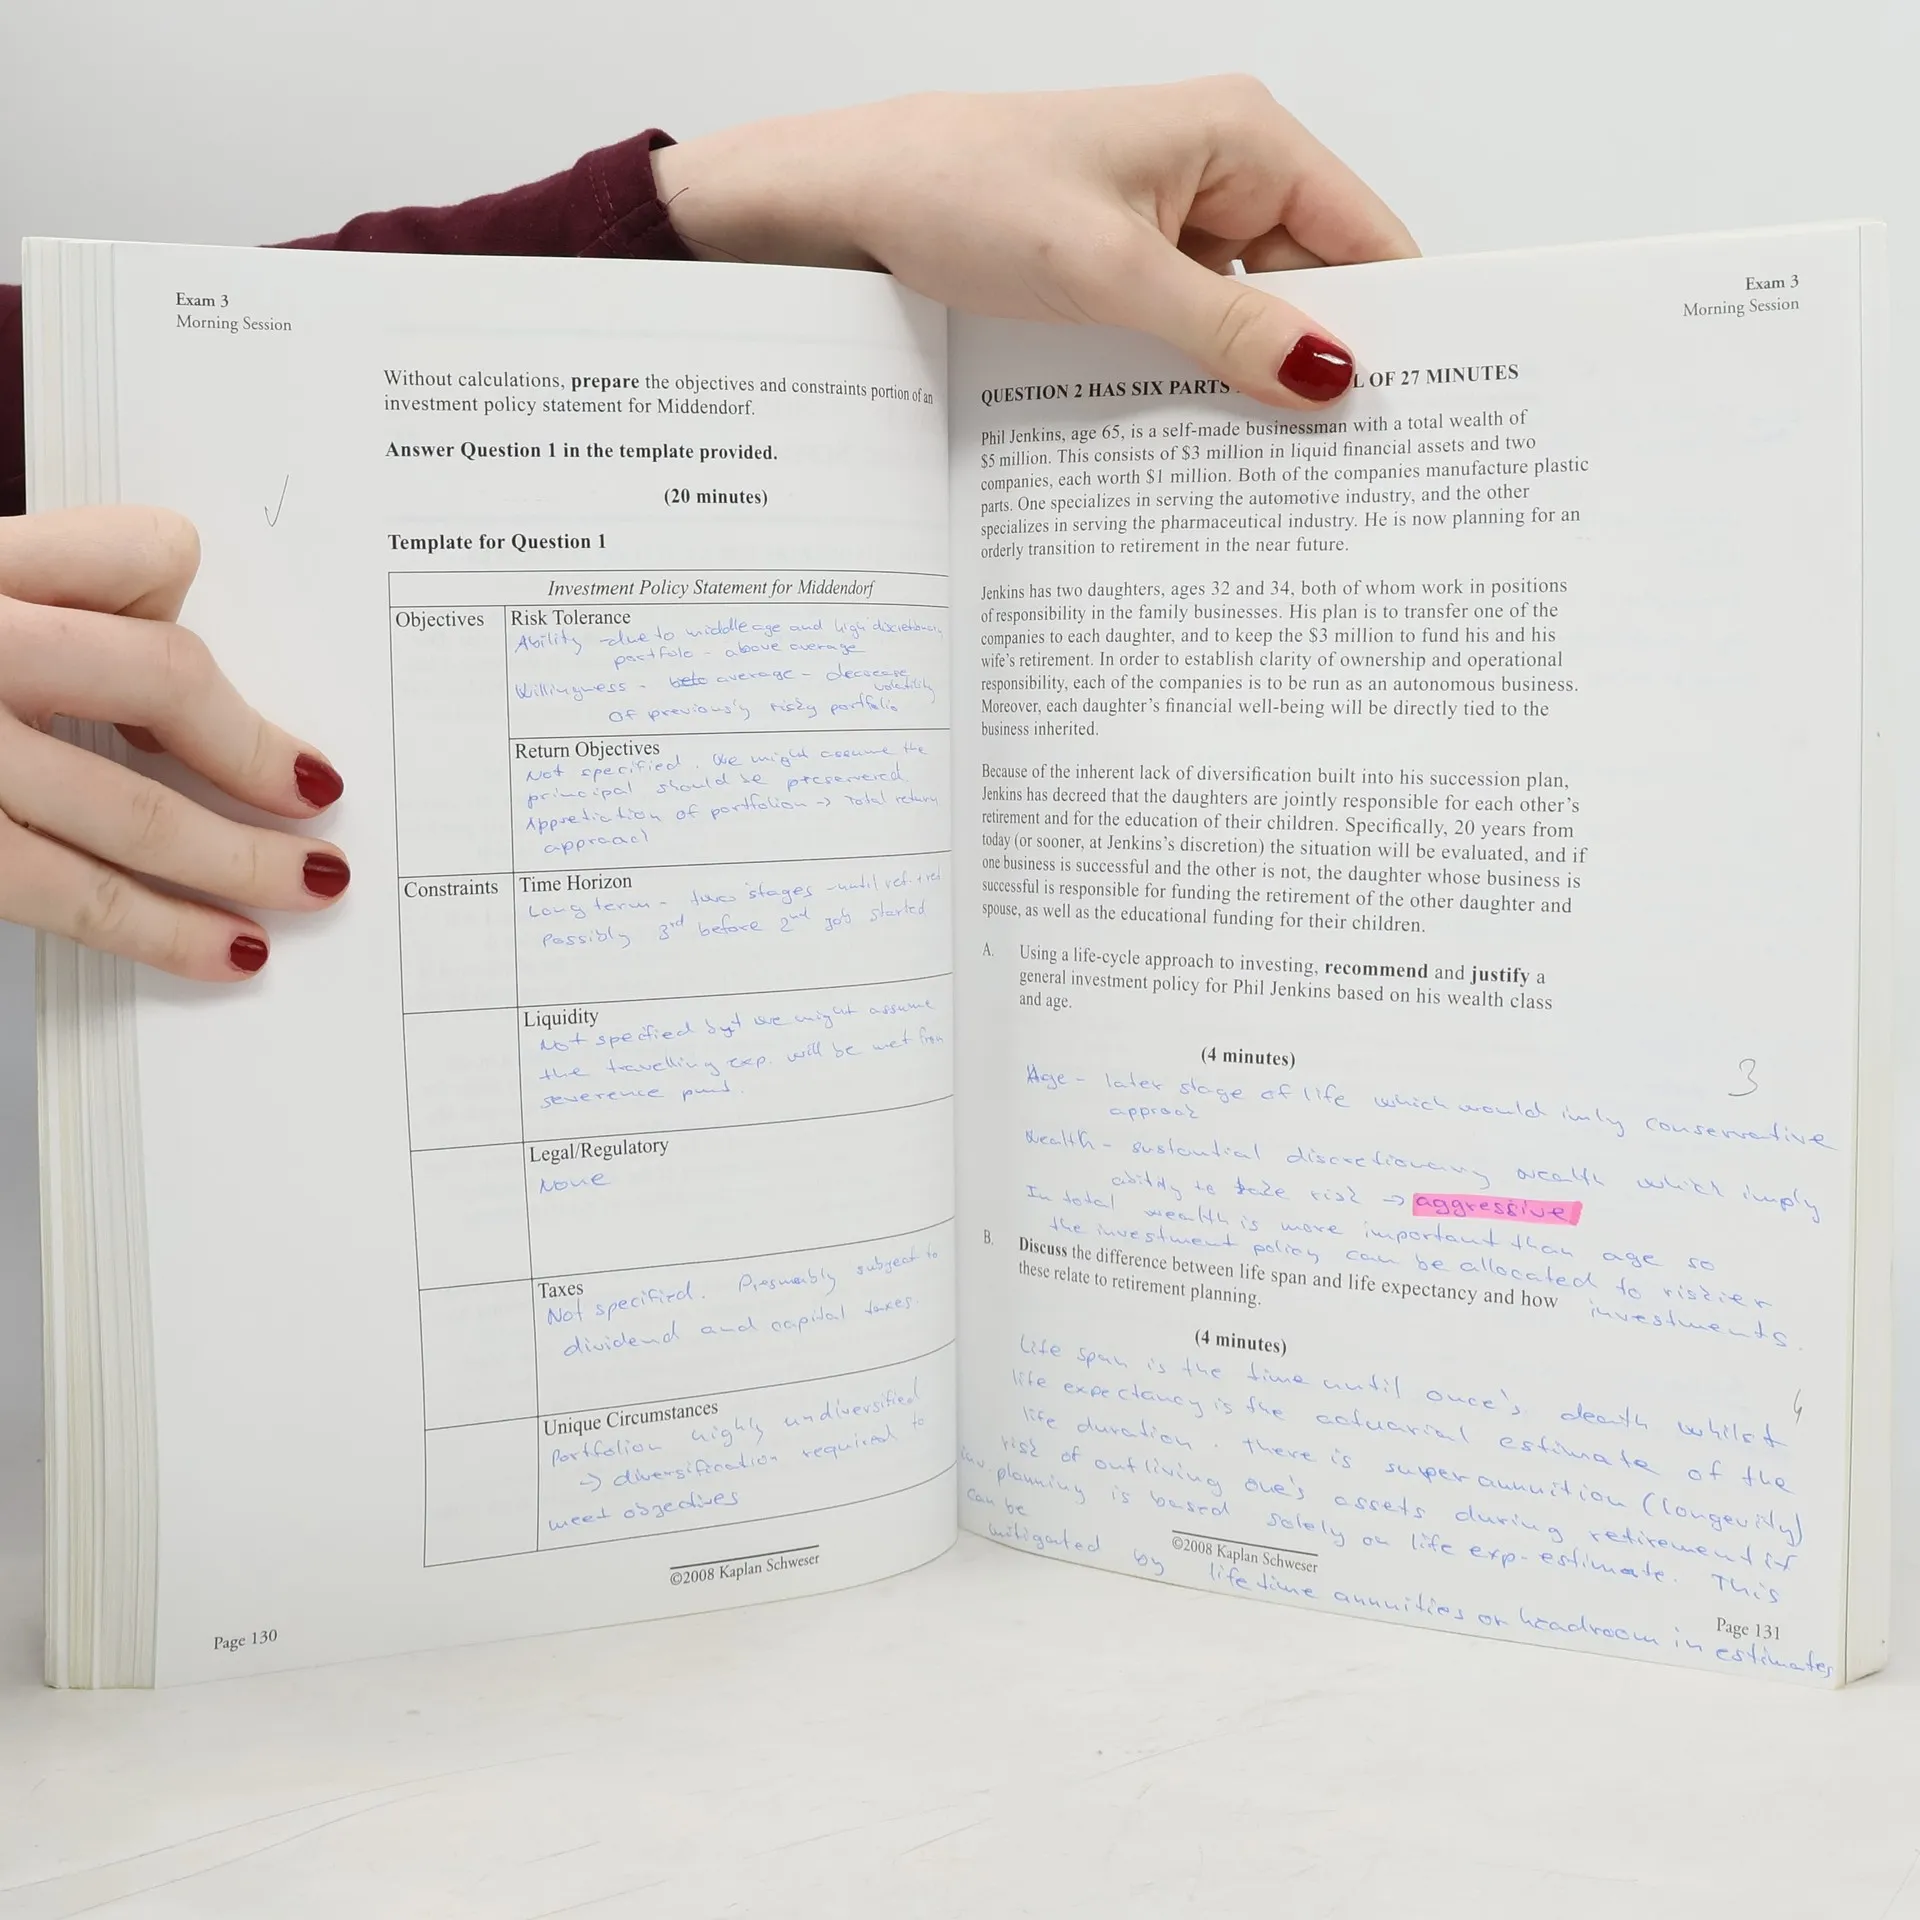 Exam 3
Morning Session
Without calculations, prepare the objectives and constraints portion of an
investment policy statement for Middendorf.
Answer Question 1 in the template provided.
(20 minutes)
Template for Question 1
Investment Policy Statement for Middendorf
Objectives
Risk Tolerance
Ability - due to middle age and high discretionary
portfolo - above average
Willingness - average - decrease
volatility
of previously risky portfolio
Return Objectives
Not specified. We might assume the
principal should be preservered
Appretiation of portfolion → Total return
approach
Constraints
Time Horizon
Long term - two stages - until ret. + ret
Possibly 3rd before 2nd job started
Liquidity
Not specified but we might assume
the travelling exp. will be met from
severence
Legal/Regulatory
None
Taxes
Not specified. Presumably subject to
dividend and capital taxes.
Unique Circumstances
Portfolion highly undiversified
→ diversification required to
meet objectives
©2008 Kaplan Schweser
Page 130
Exam 3
Morning Session
QUESTION 2 HAS SIX PARTS L OF 27 MINUTES
Phil Jenkins, age 65, is a self-made businessman with a total wealth of
$5 million. This consists of $3 million in liquid financial assets and two
companies, each worth $1 million. Both of the companies manufacture plastic
parts. One specializes in serving the automotive industry, and the other
specializes in serving the pharmaceutical industry. He is now planning for an
orderly transition to retirement in the near future.
Jenkins has two daughters, ages 32 and 34, both of whom work in positions
of responsibility in the family businesses. His plan is to transfer one of the
companies to each daughter, and to keep the $3 million to fund his and his
wife's retirement. In order to establish clarity of ownership and operational
responsibility, each of the companies is to be run as an autonomous business.
Moreover, each daughter's financial well-being will be directly tied to the
business inherited.
Because of the inherent lack of diversification built into his succession plan,
Jenkins has decreed that the daughters are jointly responsible for each other's
retirement and for the education of their children. Specifically, 20 years from
today (or sooner, at Jenkins's discretion) the situation will be evaluated, and if
one business is successful and the other is not, the daughter whose business is
successful is responsible for funding the retirement of the other daughter and
spouse, as well as the educational funding for their children.
A. Using a life-cycle approach to investing, recommend and justify a
general investment policy for Phil Jenkins based on his wealth class
and age.
(4 minutes)
3
Age - later stage of life which would imly conservative
Wealth - sustantial discretionary wealth which imply
ability to take risk → aggressive
In total wealth is more important than age so
the investment policy can be allocated to riskier
investments.
B. Discuss the difference between life span and life expectancy and how
these relate to retirement planning.
(4 minutes)
4
Life span is the time until once's death whilst
life expectancy is the actuarial estimate of the
life duration. There is superannuition (longevity)
risk of outliving one's assets during retirement if
inv. planning is based solely on life exp. estimate. This
can be
mitigated by life time annuities or headroom in estimates
©2008 Kaplan Schweser
Page 131